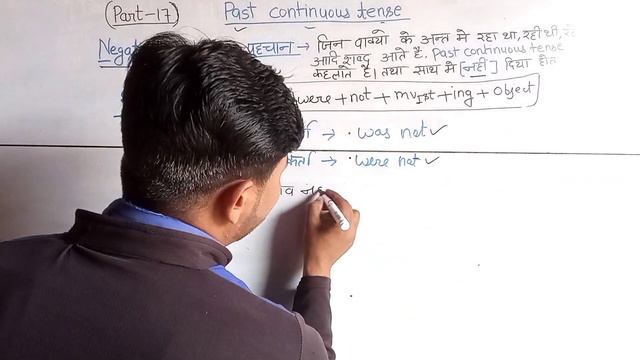 (Part-17) Past continuous tense
पहचान → जिन वाक्यो के अन्त मे रहा था, रही थी,
आदि शब्द आते है. Past continuous tense
कहलाते है। तथा साथ मे [नहीं] दिया होत
were + not + mvIst + ing + Object
→ • was not ✓
→ • were not ✓